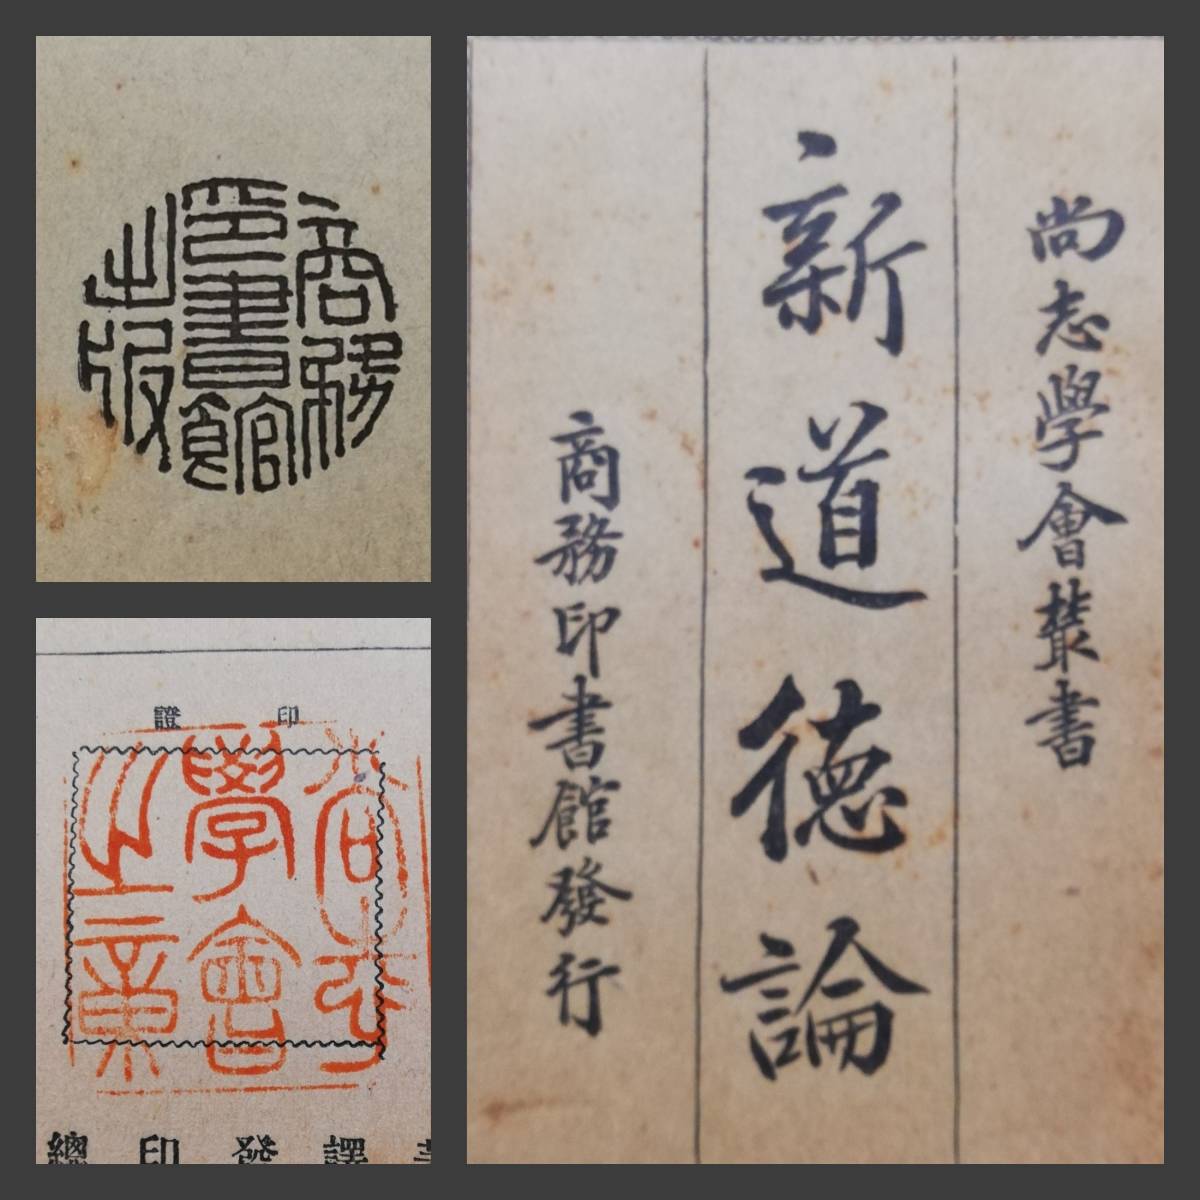 商務
印書館
出版
印證
學會
之章
總印發譯
尚志學會叢書
新道德論
商務印書館發行